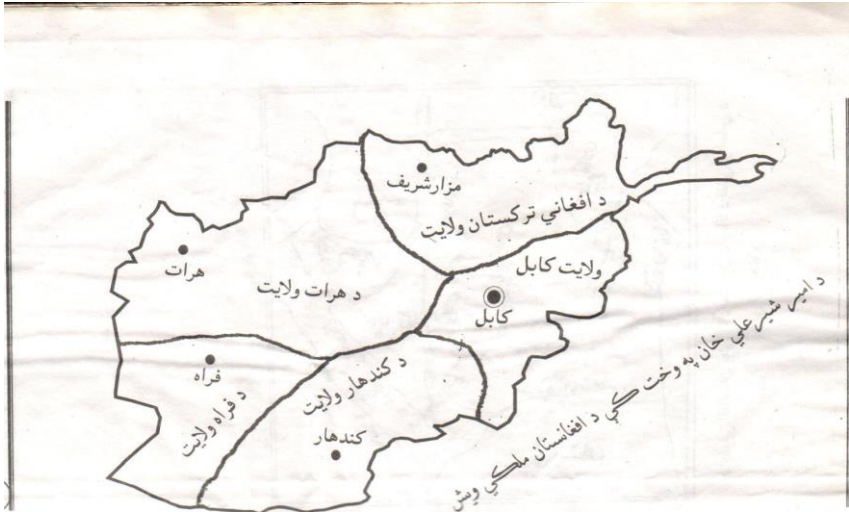 مزارشریف
د افغاني ترکستان ولایت
هرات
د هرات ولایت
ولایت کابل
کابل
فراه
د فراه ولایت
د کندهار ولایت
کندهار
د امیر شیرعلي خان په وخت کې د افغانستان ملکي ویش